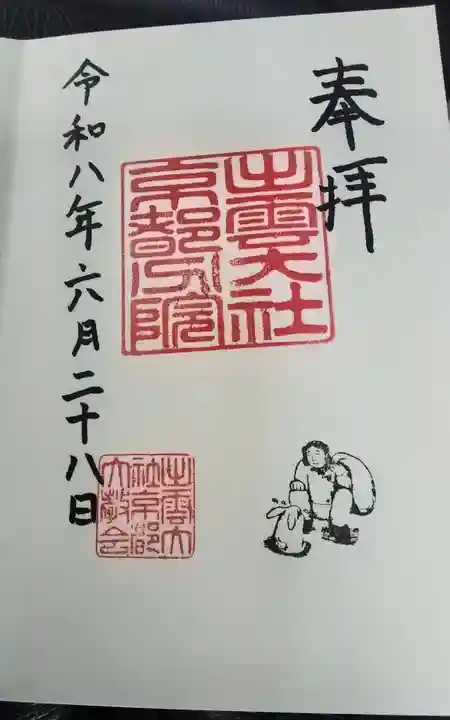 奉拝
出雲大社
京都分院
令和八年六月二十八日
出雲大
社京都
大教会